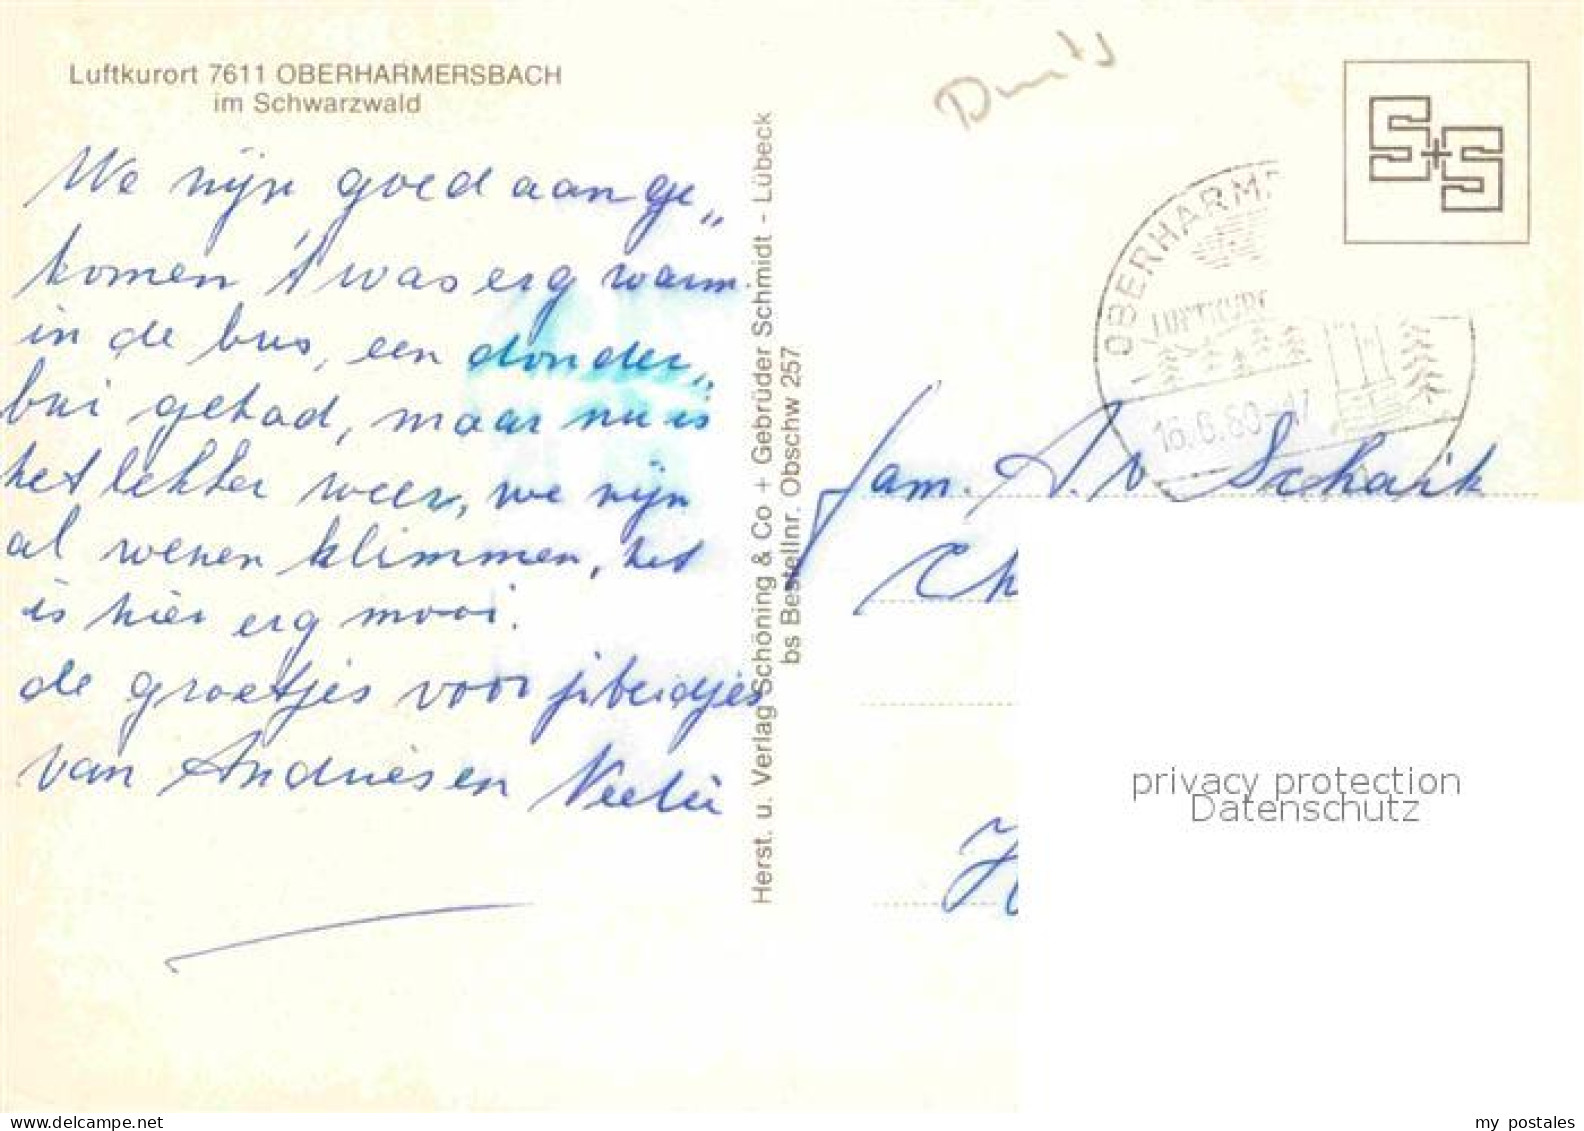 Luftkurort 7611 OBERHARMERSBACH
im Schwarzwald
We zijn goed aange„
komen 't was erg warm
in de bus, een donder„
bui gehad, maar nu is
het lekker weer, we zijn
al wezen klimmen, het
is hier erg mooi.
de groetjes voor jibeidjes
van Andries en Neelie
Herst. u. Verlag Schöning & Co + Gebrüder Schmidt - Lübeck
bs Bestellnr. Obschw 257
S+S
OBERHARM
LUFTKUR
16.6.80-17
fam. A. v Schaik
Ch
H
privacy protection
Datenschutz
my postales